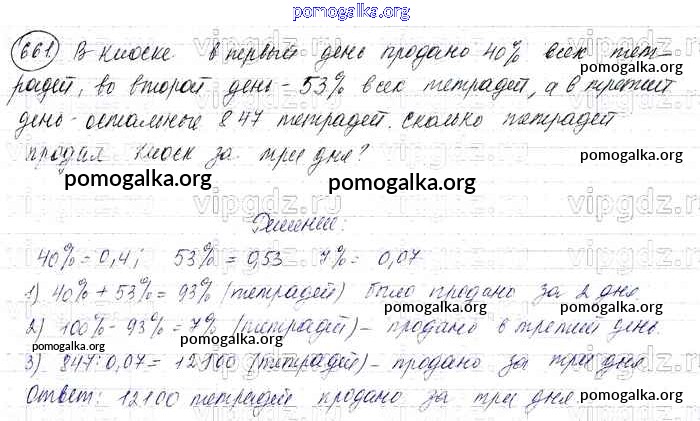 pomogalka.org
661 В киоске в первый день продано 40% всех тет-
радей, во второй день - 53% всех тетрадей, а в третий
день - остальные 847 тетрадей. Сколько тетрадей
продал киоск за три дня?
pomogalka.org pomogalka.org pomogalka.org
Решение:
40% = 0,4; 53% = 0,53 7% = 0,07
1) 40% + 53% = 93% (тетрадей) было продано за 2 дня.
2) 100% - 93% = 7% (тетрадей) - продано в третий день.
3) 847 : 0,07 = 12100 (тетрадей) - продано за три дня
Ответ: 12100 тетрадей продано за три дня.
pomogalka.org pomogalka.org pomogalka.org
vipgdz.ru vipgdz.ru vipgdz.ru